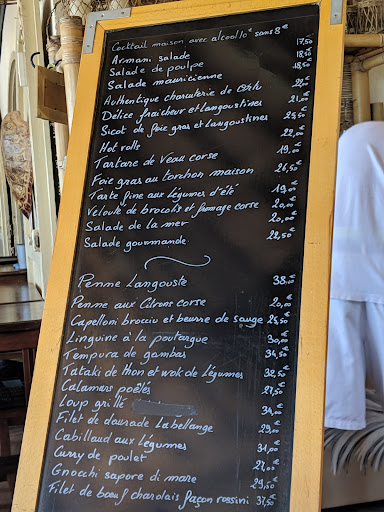 Cocktail maison avec alcool sans 8€
Armani salade 17,50
Salade de poulpe 18,50€
Salade mauricienne 18,50€
Authentique charcuterie de 22,00€
Délice fraîcheur et langoustines 21,00€
Sicot de foie gras et langoustines 25,50€
Hot rolls 22,00€
Tartare de Veau corse 19,00€
Foie gras au torchon maison 26,50€
Tarte fine aux légumes d'été 19,00€
Velouté de brocolis et fromage corse 20,00€
Salade de la mer 20,00€
Salade gourmande 22,50€
Penne Langouste 38,00€
Penne aux Citrons corse 20,00€
Capellon brocciu et beurre de sauge 28,50€
Linguine à la poutargue 30,00€
Tempura de gambas 34,50€
Tataki de thon et wok de légumes 32,50€
Calamars poêlés 27,50€
Loup grillé 34,00€
Filet de daurade Labellange 29,00€
Cabillaud aux légumes 31,00€
Curry de poulet 27,00€
Gnocchi sapore di mare 29,50€
Filet de bœuf charolais façon rossini 37,50€